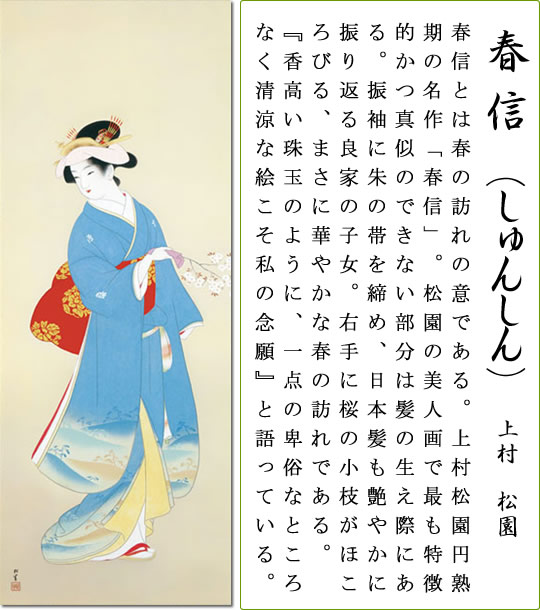 春信（しゅんしん）
上村 松園
春信とは春の訪れの意である。上村松園円熟
期の名作「春信」。松園の美人画で最も特徴
的かつ真似のできない部分は髪の生え際にあ
る。振袖に朱の帯を締め、日本髪も艶やかに
振り返る良家の子女。右手に桜の小枝がほこ
ろびる、まさに華やかな春の訪れである。
『香高い珠玉のように、一点の卑俗なところ
なく清涼な絵こそ私の念願』と語っている。